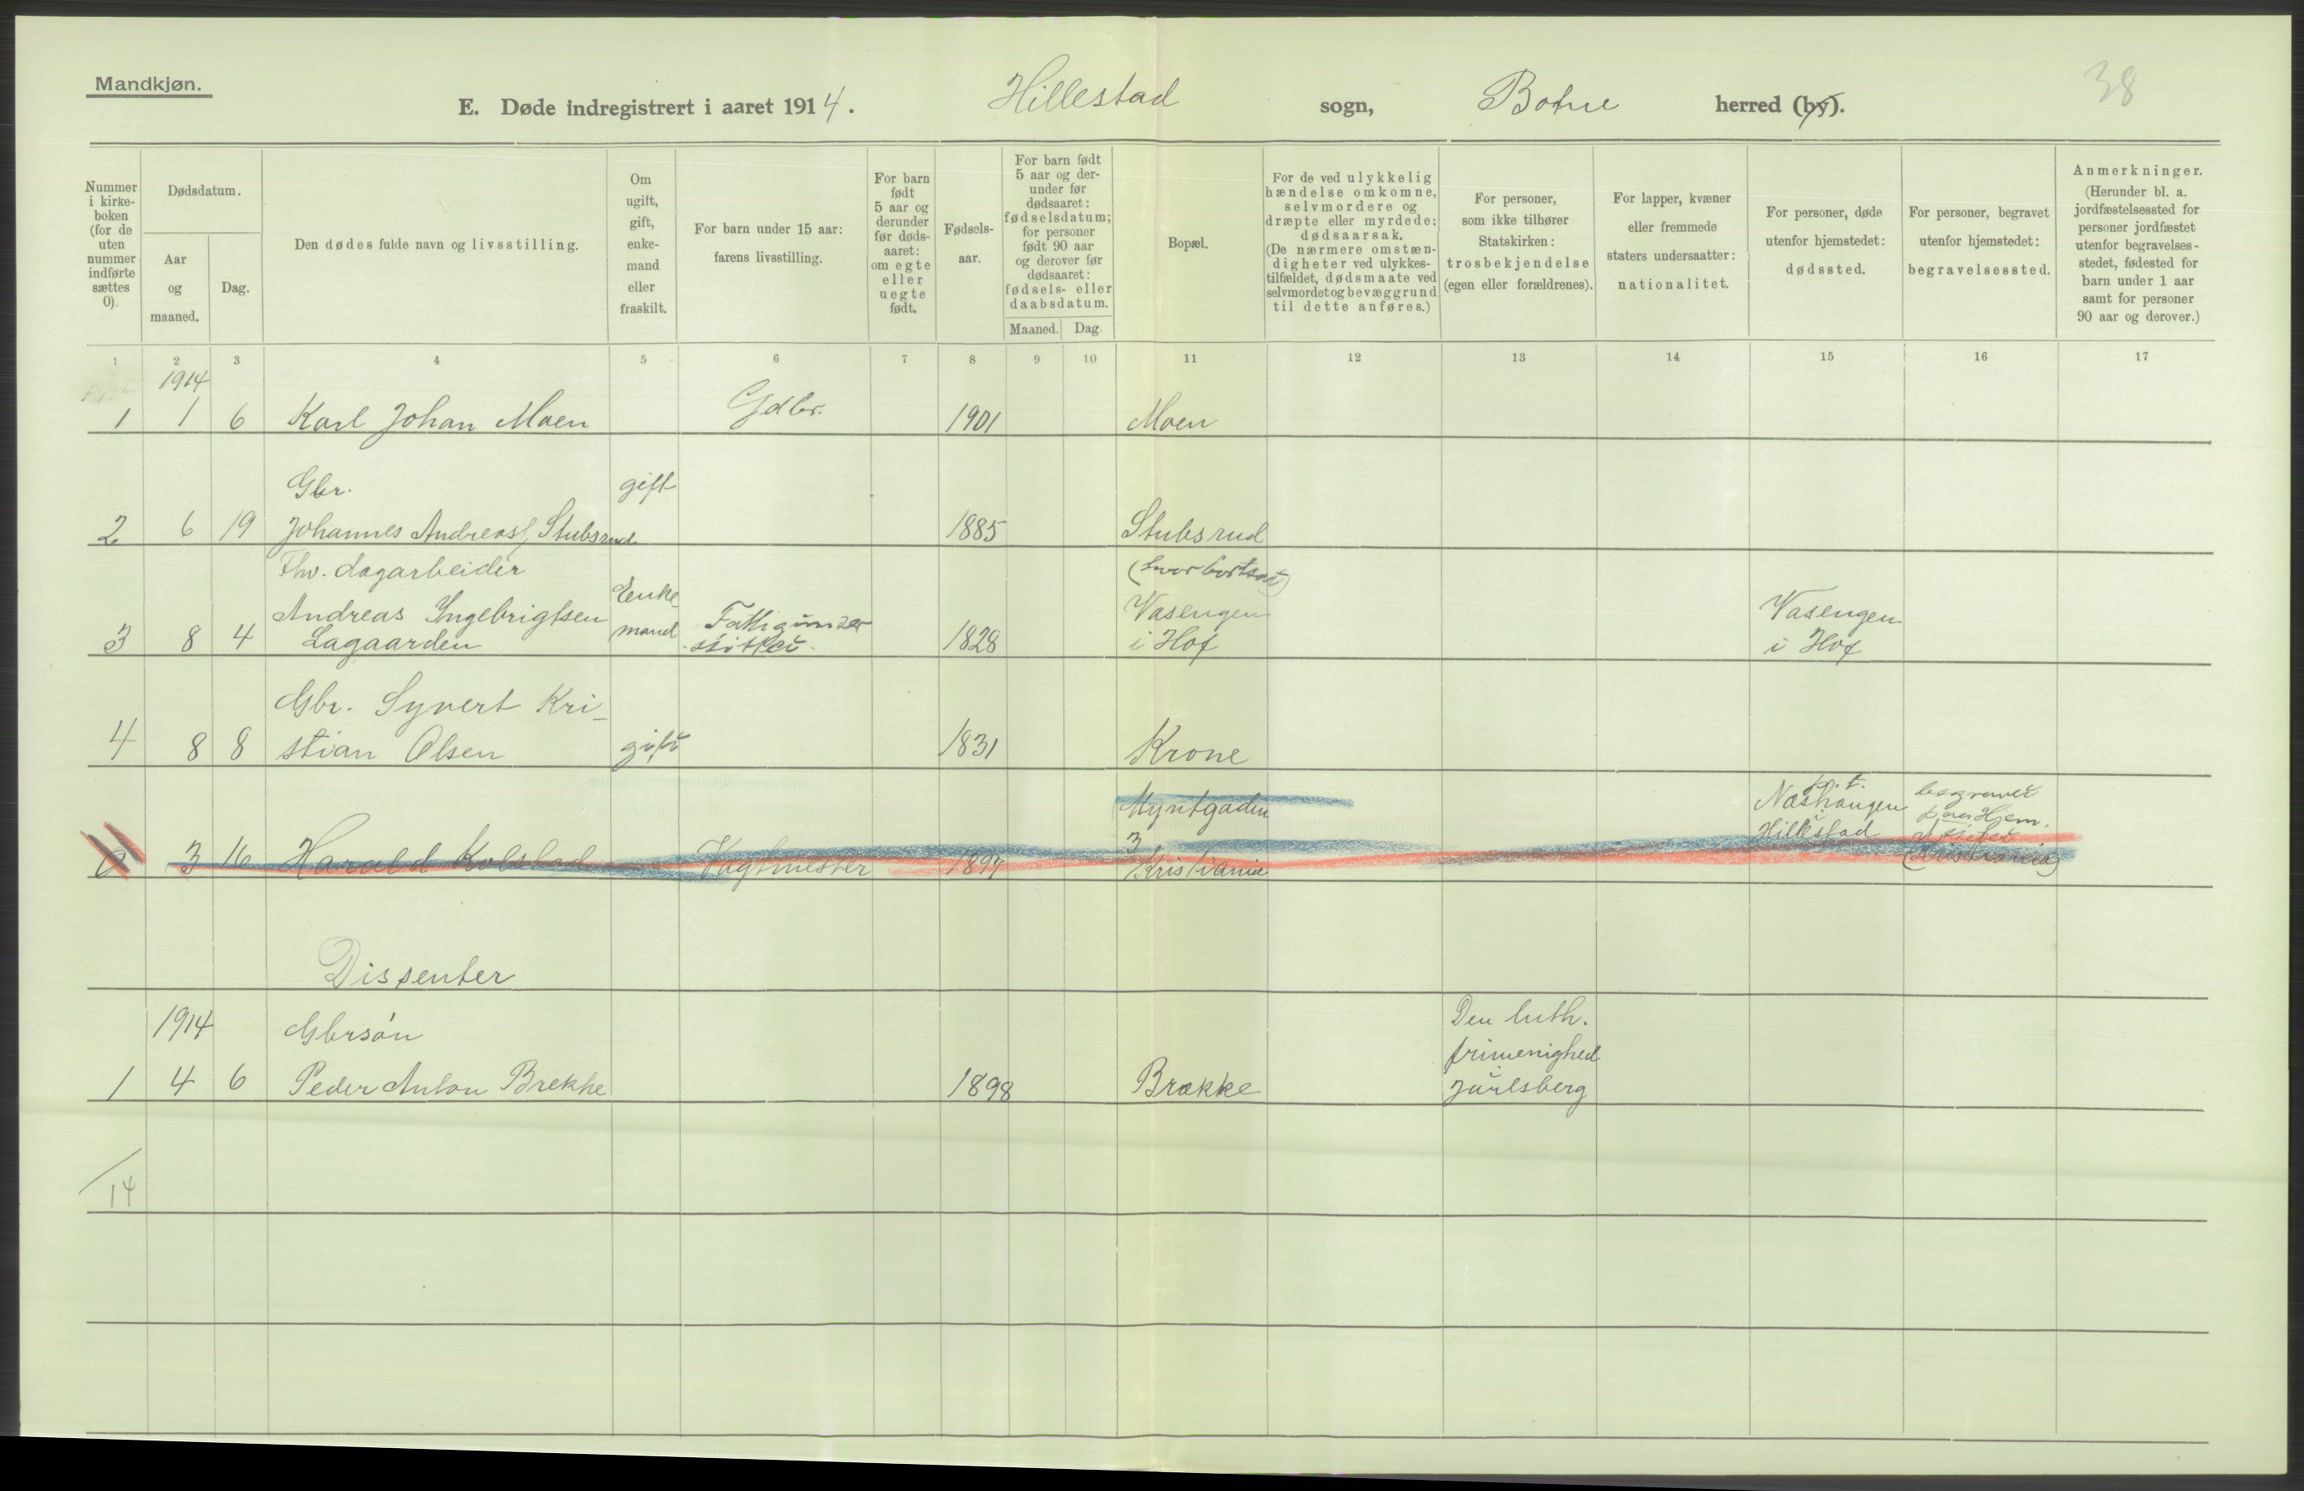 Mandkjøn.
E. Døde indregistrert i aaret 1914. Hillestad sogn, Botne herred (by).
38
Nummer i kirke-boken (for de uten nummer indførte sættes 0).
Dødsdatum.
Aar og maaned.
Dag.
Den dødes fulde navn og livsstilling.
Om ugift, gift, enke-mand eller fraskilt.
For barn under 15 aar: farens livsstilling.
For barn født 5 aar og derunder før døds-aaret: om egte eller uegte født.
Fødsels-aar.
For barn født 5 aar og der-under før dødsaaret: fødselsdatum; for personer født 90 aar og derover før dødsaaret: fødsels- eller daabsdatum.
Maaned. Dag.
Bopæl.
For de ved ulykkelig hændelse omkomne, selvmordere og dræpte eller myrdede: dødsaarsak. (De nærmere omstæn-digheter ved ulykkes-tilfældet, dødsmaate ved selvmordet og bevæggrund til dette anføres.)
For personer, som ikke tilhører Statskirken: trosbekjendelse (egen eller forældrenes).
For lapper, kvæner eller fremmede staters undersaatter: nationalitet.
For personer, døde utenfor hjemstedet: dødssted.
For personer, begravet utenfor hjemstedet: begravelsessted.
Anmerkninger. (Herunder bl. a. jordfæstelsessted for personer jordfæstet utenfor begravelses-stedet, fødested for barn under 1 aar samt for personer 90 aar og derover.)
1 2 3 4 5 6 7 8 9 10 11 12 13 14 15 16 17
1914
1 1 6 Karl Johan Moen Gdbr. 1901 Moen
Gbr. gift
2 6 19 Johannes Andreas Stubsrud 1885 Stubsrud
Fhv. dagarbeider (hvor bortsat)
Andreas Ingebrigtsen Enke- Fattigunder Vasengen Vasengen
3 8 4 Lagaarden mand støttet. 1828 i Hof i Hof
Gbr. Syvert Kri-
4 8 8 stian Olsen gift 1831 Krone
Myntgaden p.t. Næshaugen begravet
3 i Hillestad Vor
0 3 16 Harald Kolstad Vagtmester 1897 Kristiania (Kristiania)
Dissenter
1914 Gbrsøn Den luth.
frimenighed
1 4 6 Peder Anton Brekke 1898 Brække Jarlsberg
/14